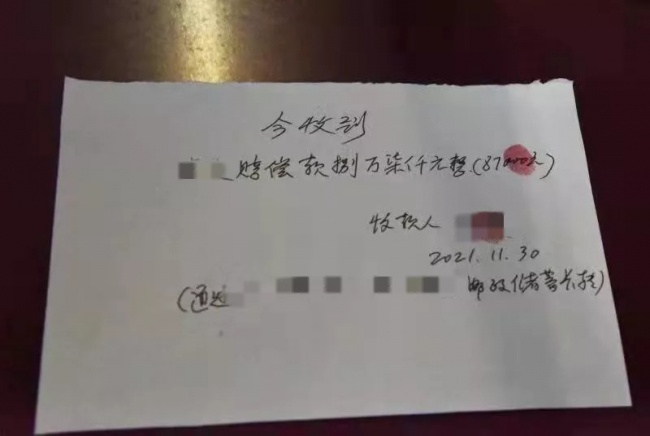 今收到
赔偿款捌万柒仟元整(87000元)
收款人
2021.11.30
(通过 邮政储蓄卡转)